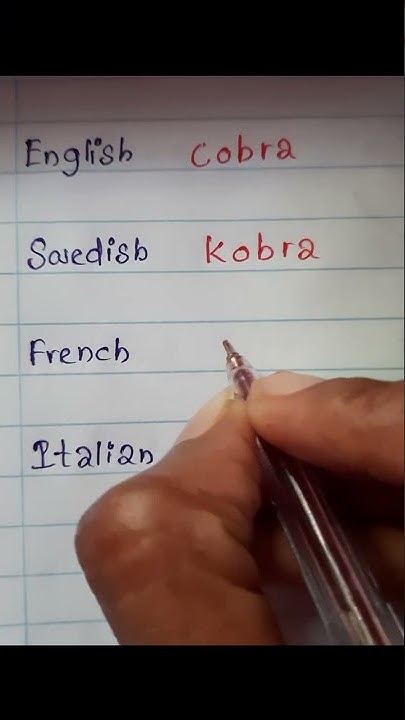 English cobra
Swedish Kobra
French
Italian